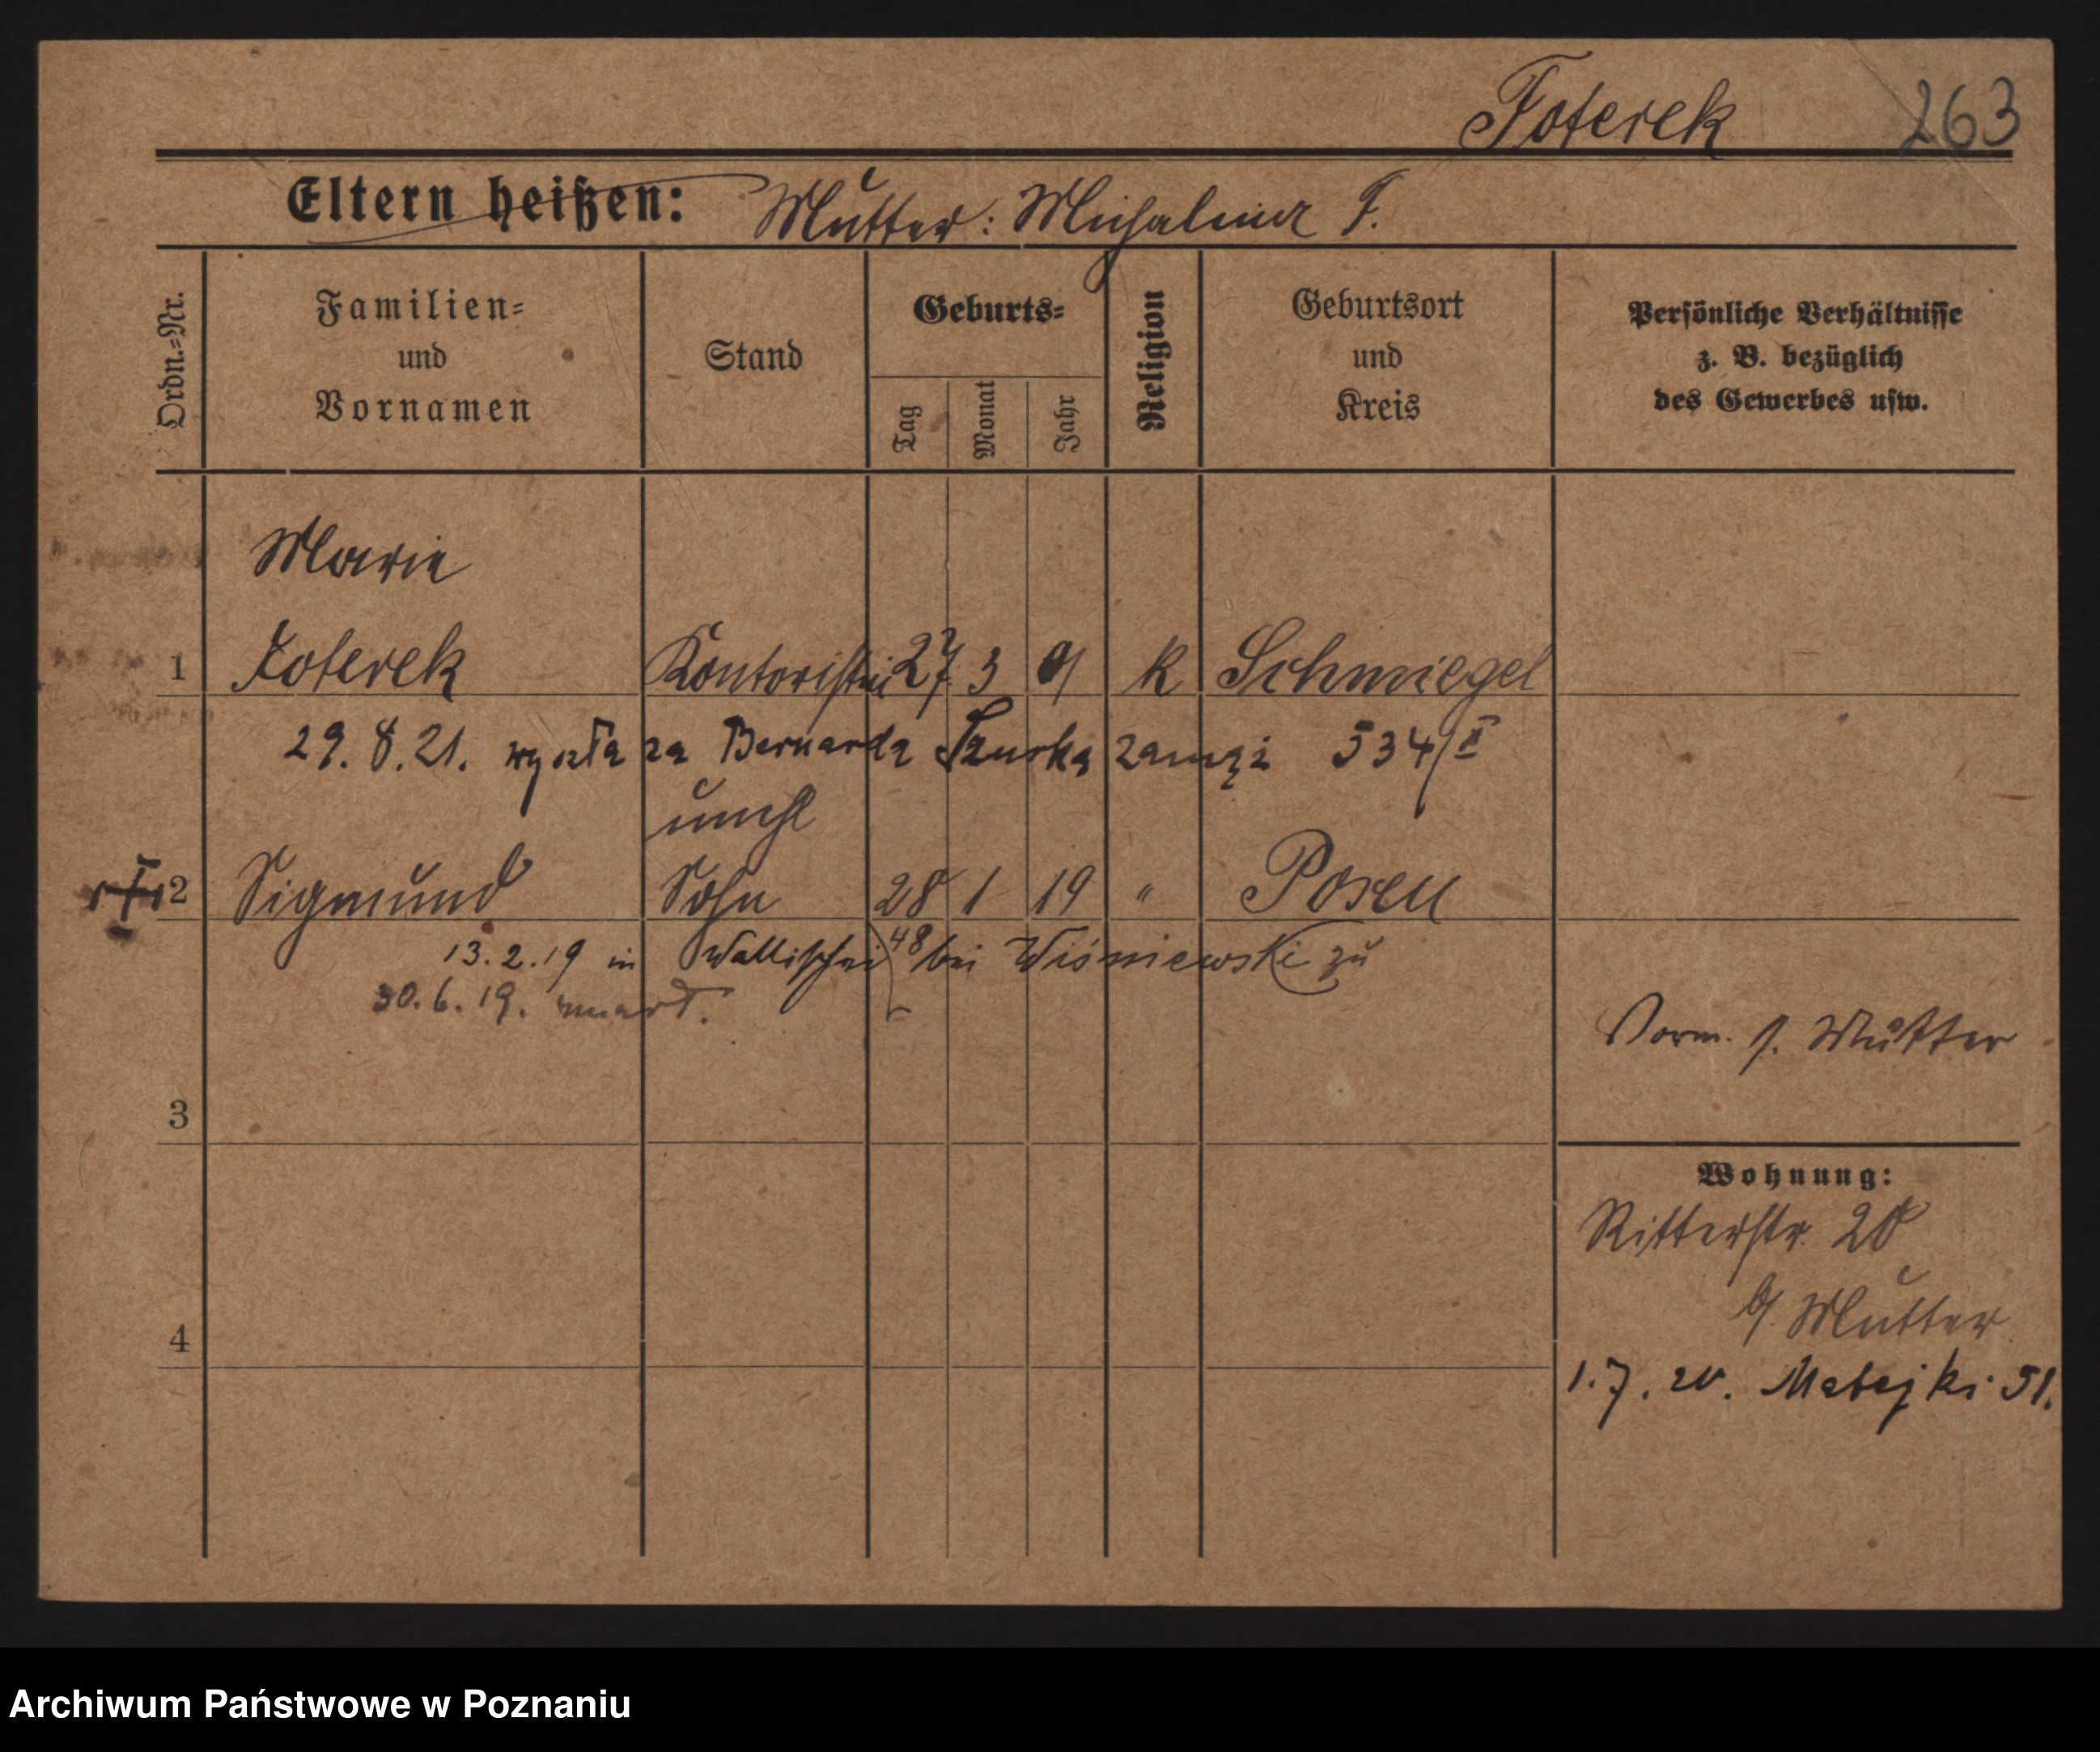 Foterek 263
Eltern heißen: Mutter: Michalina F.
Ordn.=Nr.
Familien=
und
Vornamen
Stand
Geburts=
Tag
Monat
Jahr
Religion
Geburtsort
und
Kreis
Persönliche Verhältnisse
z. B. bezüglich
des Gewerbes usw.
Marie
1 Foterek Kontoristin 27. 3 01 K Schmiegel
29. 8. 21. wyszła za Bernarda zamąż 534/II
unehl
2 Sigmund Sohn 28 1 19 " Posen
13. 2. 19 in Wallischei 48 bei Wiśniewski zu
30. 6. 19. zmarł.
Vorm. s. Mutter
3
Wohnung:
Ritterstr. 20
b/ Mutter
4
1. 7. 20. Matejki 51.
Archiwum Państwowe w Poznaniu